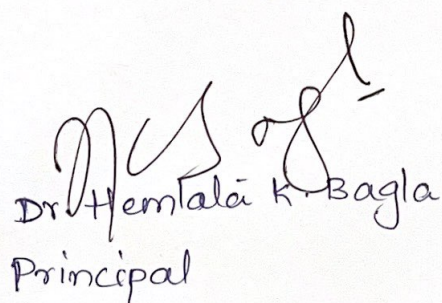 Dr. Hemlatā K. Bagla
Principal